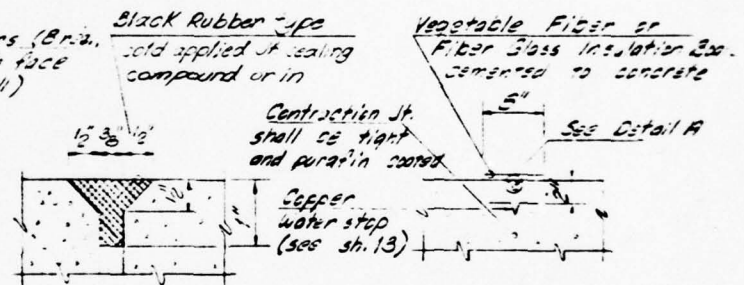 Black Rubber type
cold applied Jt. sealing
compound or in
face
Vegetable Fiber or
Fiber Glass Insulation
cemented to concrete
Contraction Jt.
shall be tight
and parafin coated
See Detail A
1/2" 3/8" 1/2"
1/2"
1"
Copper
water stop
(see sh. 13)